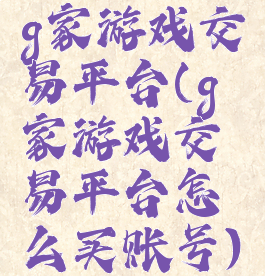 g家游戏交
易平台(g
家游戏交
易平台怎
么买账号)